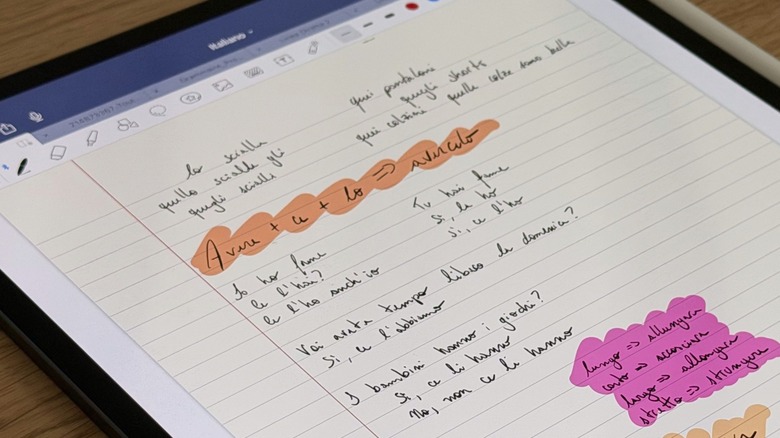 Italiano
lo scialle
quello scialle gli
quegli scialli
quei pantaloni
quegli shorts
quei calzini quelle calze sono belle
Avere + ce + lo => avercelo
Io ho fame
Ce l'hai?
Ce l'ho anch'io
Tu hai fame
Si, ce l'ho
Voi avete tempo libero la domenica?
Si, ce l'abbiamo
I bambini hanno i giochi?
Si, ce li hanno
No, non ce li hanno
lungo => allungare
corto => accorciare
largo => allargare
stretto => stringere